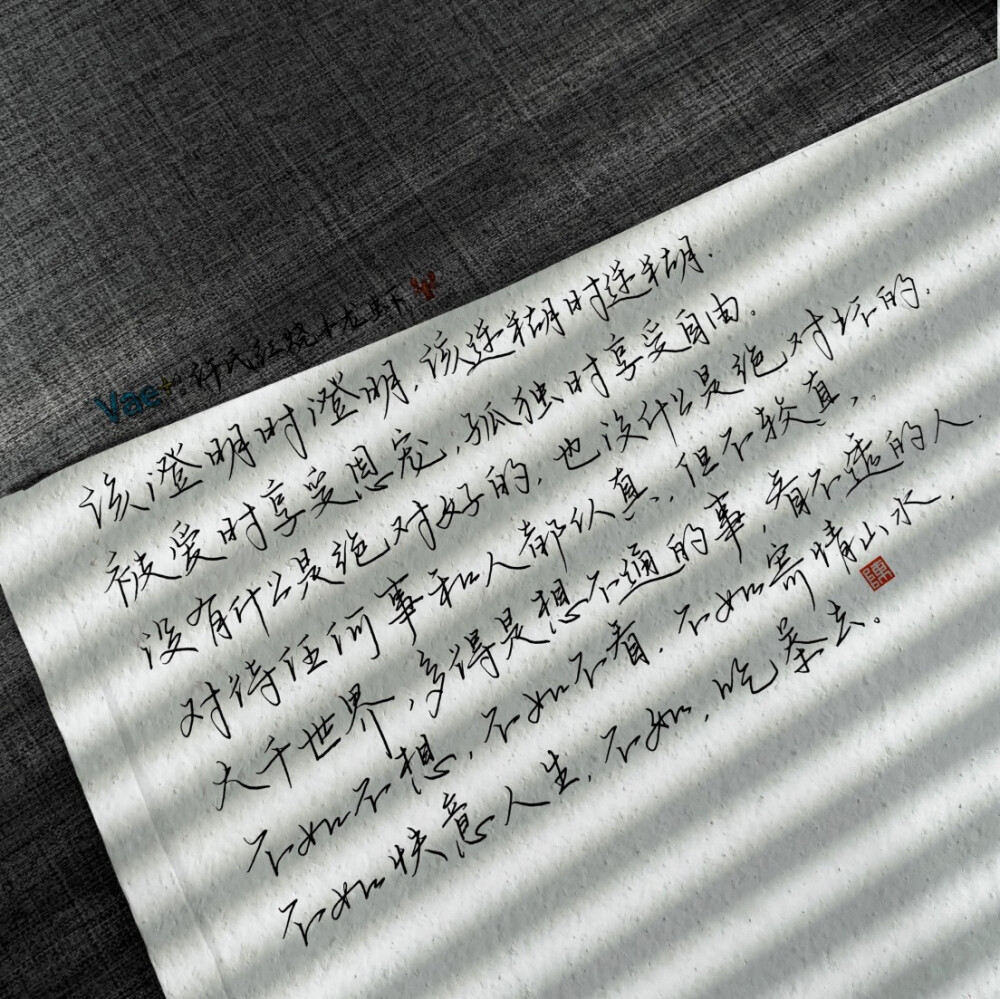 Vae+ 许氏红烧
该澄明时澄明，该迷糊时迷糊.
被爱时享受恩宠，孤独时享受自由。
没有什么是绝对好的，也没什么是绝对坏的.
对待任何事和人都认真，但不较真，
大千世界，多得是想不通的事，看不透的人.
不如不想，不如不看，不如寄情山水，
不如快意人生，不如，吃茶去。